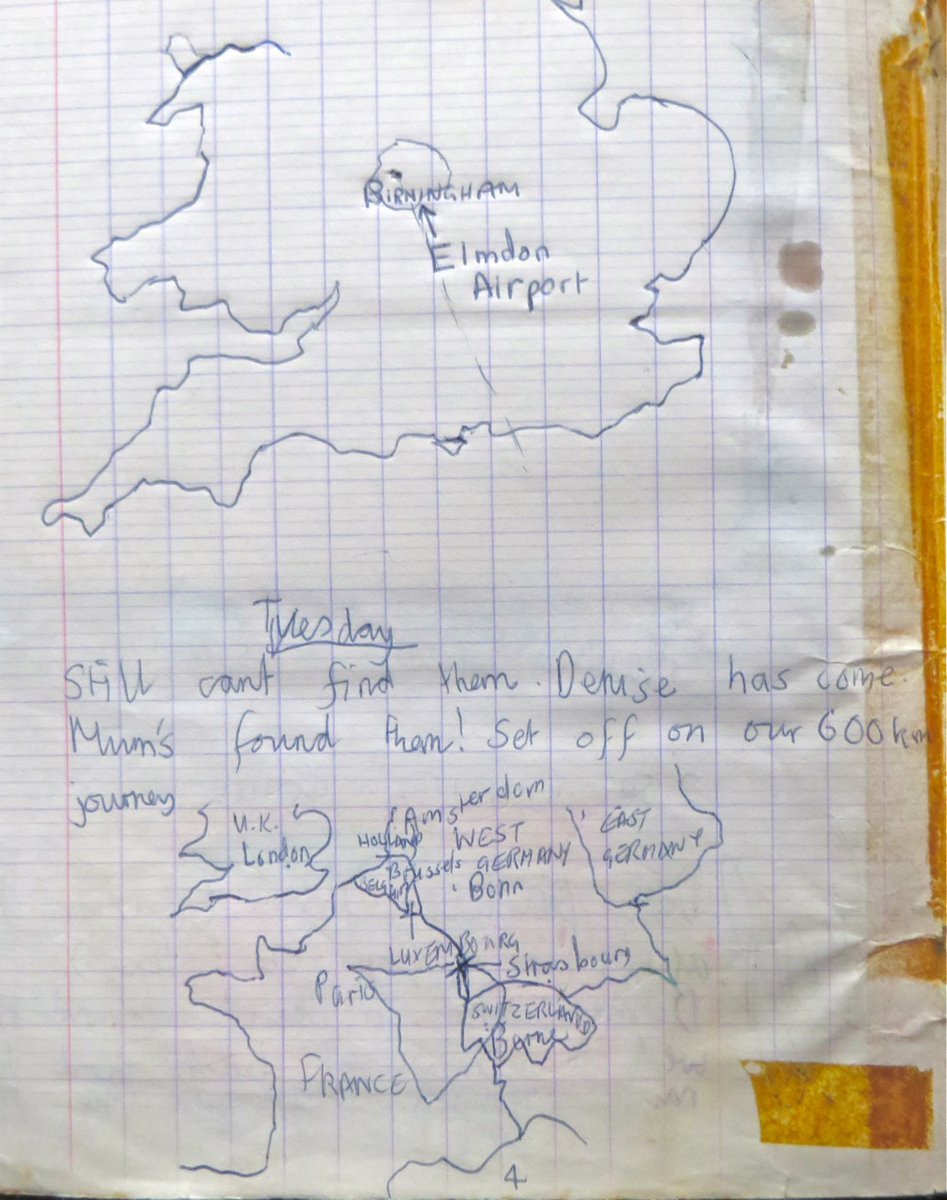 BIRNINGHAM
Elmdon
Airport
Tuesday
Still cant find them. Denise has come.
Mum's found them! Set off on our 600km
journey
Amsterdam
U.K.
HOLLAND
WEST
EAST
London
Brussels
GERMANY
GERMANY
BELGIUM
Bonn
LUXEMBOURG
Strasbourg
Paris
SWITZERLAND
Berne
FRANCE
4